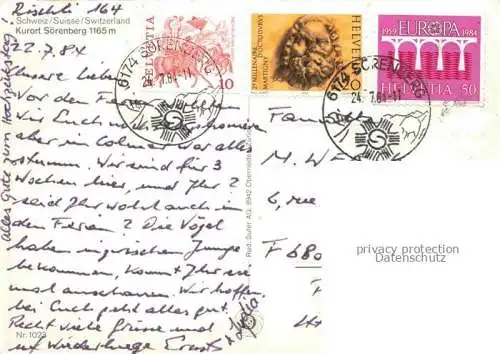 Rischli 164
Schweiz / Suisse / Switzerland
Kurort Sörenberg 1165 m
22.7.84
Unsere Lieben
Vor den Ferien
wir Euch
aber in Colmar war alles
Wir sind für 3
Wochen hier, und Ihr 2
seid Ihr wohl auch in
den Ferien? Die Vögel
haben inzwischen Junge
bekommen, kommt Ihr sie
mal anschauen. Wir hoffen
bei Euch geht alles gut.
Recht viele Grüsse und
auf Wiedersehen Ernst
+ Lydia
alles Gute zum Hochzeitstag
Nr. 1023
Rud. Suter AG, 8942 Oberrieden
HELVETIA
10
2E MILLENAIRE MARTIGNY OCTODURVS
HELVETIA
1959 EUROPA 1984
HELVETIA 50
6174 SÖRENBERG
24.-7.84-11
6174 SÖRENBERG
24.-7.84-11
Familie
M. W
6, rue
F 680
privacy protection
Datenschutz